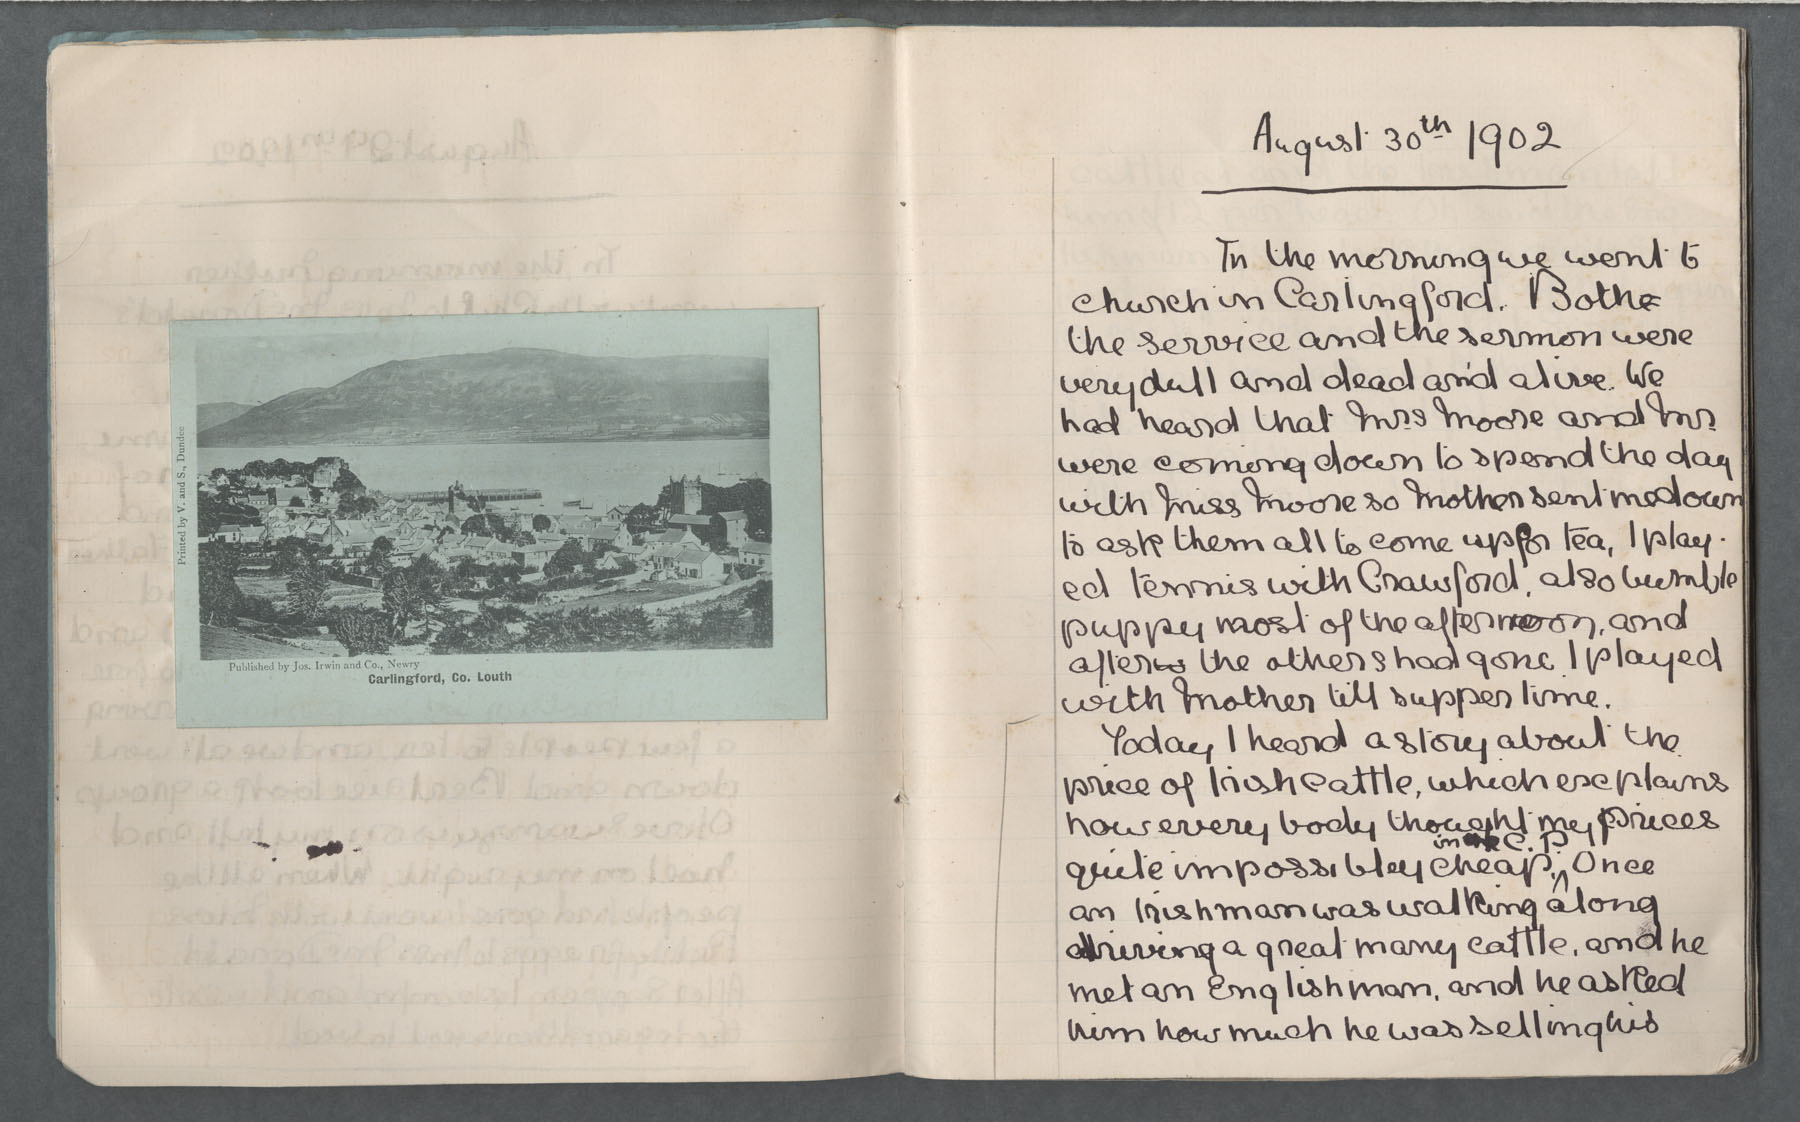 Printed by V. and S., Dundee
Published by Jos. Irwin and Co., Newry
Carlingford, Co. Louth
August 30th 1902
In the morning we went to
church in Carlingford. Bothe
the service and the sermon were
very dull and dead and alive. We
had heard that Mrs Moore and Mr.
were coming down to spend the day
with Miss Moore so Mother sent me down
to ask them all to come up for tea, I play-
ed tennis with Crawford, also bumble
puppy most of the afternoon, and
after the others had gone I played
with Mother till supper time.
Today I heard a story about the
price of Irish cattle, which explains
how every body thought my prices
in C. P.
quite impossibley cheap. Once
an Irishman was walking along
driving a great many cattle, and he
met an Englishman, and he asked
him how much he was selling his